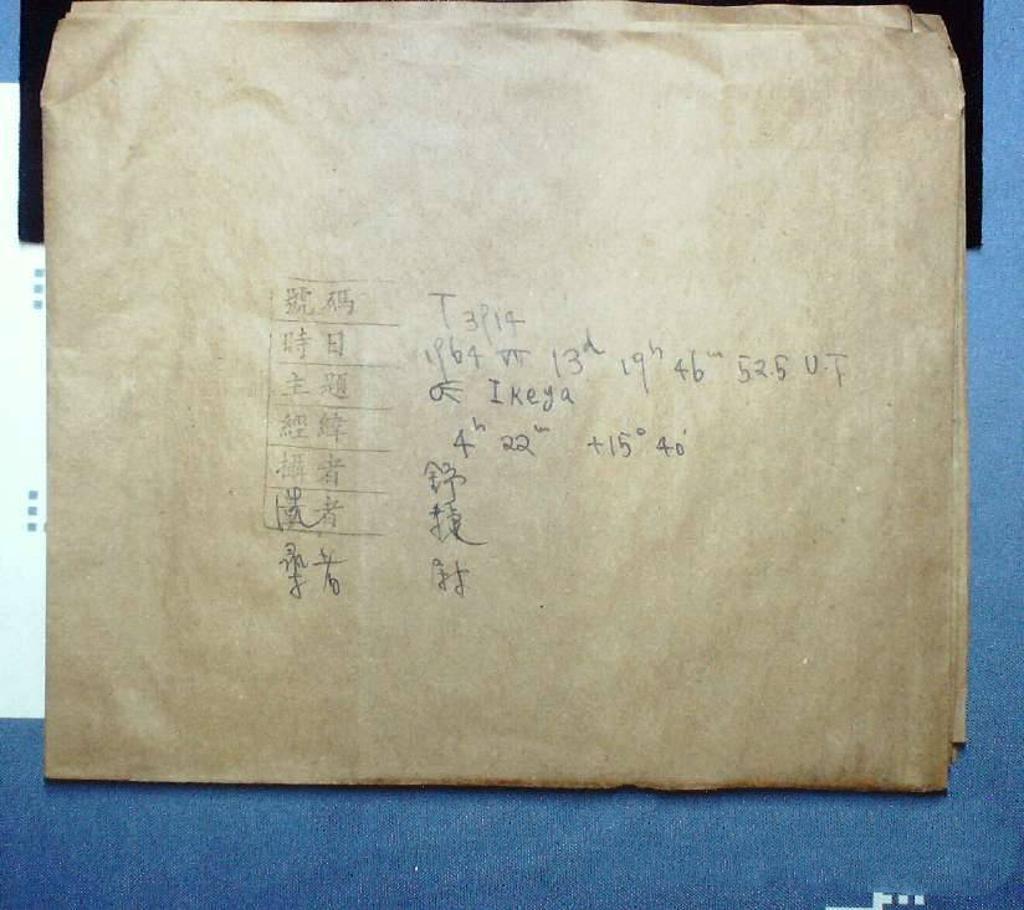 號碼 T 3914
時日 1964 VII 13d 19h 46m 52.5 U.T
主題 Ikeya
經緯 4h 22m +15° 40'
攝者 舒
者
者